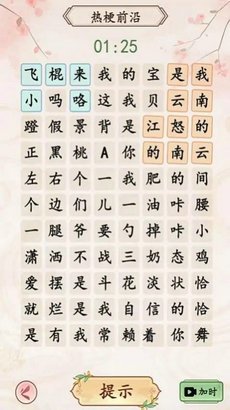 热梗前沿
01:25
飞棍来我的宝是我
小吗咯这我贝云南
蹬假景背是江怒的
正黑桃A你的南云
左右个一我肥的间
个边们儿一油咔腰
一腿爷要勺掉卡小
潇洒不战三奶态鸡
爱摆是斗花淡状恰
就烂是我自信的恰
是有我常赖着你舞
提示
加时